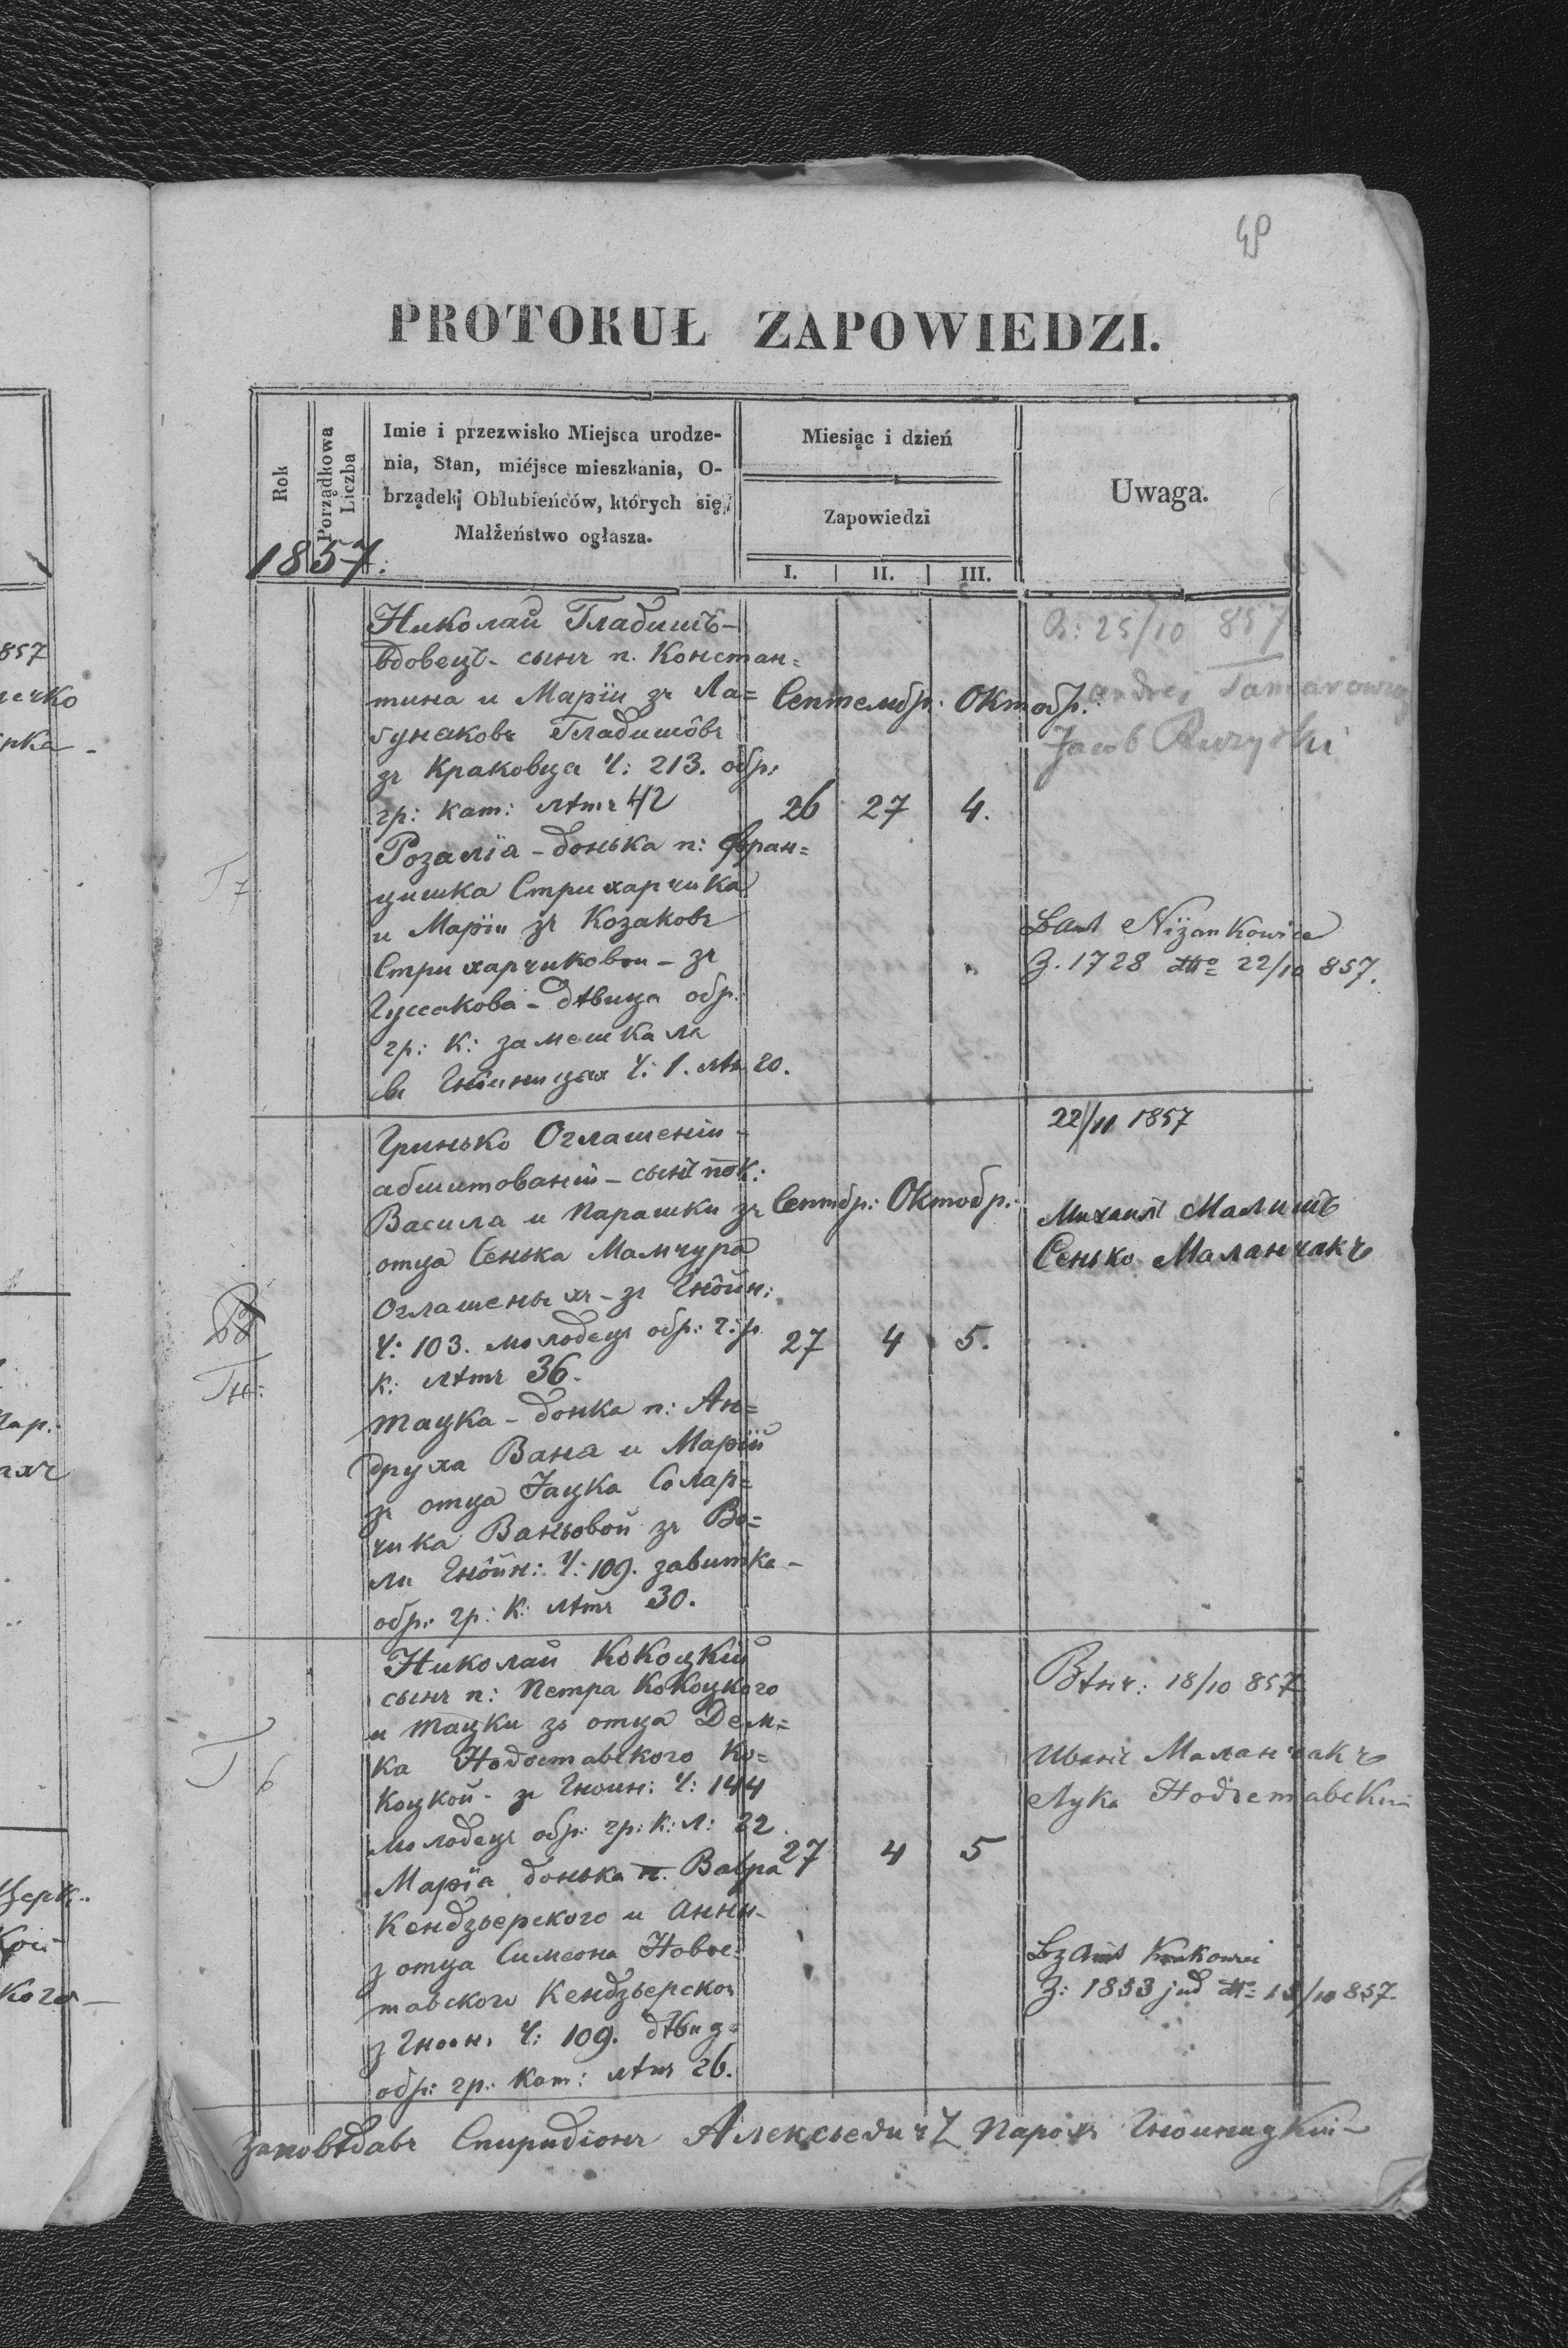 857
49
PROTOKUŁ ZAPOWIEDZI.
Rok
Porządkowa Liczba
Imie i przezwisko Miejsca urodze-
nia, Stan, miéjsce mieszkania, O-
brządek Oblubieńców, których się
Małżeństwo ogłasza.
Miesiąc i dzień
Zapowiedzi
I. II. III.
Uwaga.
1857.
Николай Гладишъ-
вдовецъ- сынъ п. Констан=
тина и Маріи зъ Ла=
гунаковъ Гладишôвъ
зъ Краковца Ч: 213. обр:
гр: кат: лѣтъ 42
Розалïа - донька п: Фран=
цишка Стрихарчика
и Маріи зъ Козаковъ
Стрихарчиковои - зъ
Гуссакова - дѣвица обр:
гр: к: замешкала
въ Гнôиницах Ч: 1. лѣт 20.
Септемвр: Октобр:
26 27 4.
25/10 857
Andrej
Jacob Ruzycki
Nizankowice
Z. 1728 22/10 857.
Гринько Оглашеніи -
абшитованій - сынъ пок:
Васила и Парашки зъ
отца Сенька Мамчура
Оглашеныхъ - зъ Гнôйн:
Ч: 103. молодецъ обр: гр
к: лѣтъ 36.
Тацка - донка п: Ан=
друха Ваня и Маріи
зъ отца Яцка Солар=
чика Ваньовой зъ Во=
ли Гнôйн: Ч: 109. завитка -
обр: гр: к: лѣтъ 30.
Септбр: Октобр:
27 4 5.
22/11 1857
Михаилъ Малишъ
Сенько Маланчакъ
Николай Кокоцкій
сынъ п: Петра Кокоцкого
и Тацки зъ отца Дем=
ка Нодоставского Ко=
коцкой - зъ Гноин: Ч: 144
молодецъ обр: гр: к: л: 22.
Маріа донька Вавра
Кендзьерского и Анны-
з отца Симеона Новос=
тавского Кендзьерскои
з Гноин. Ч: 109. дѣвиц=
обр: гр: кат: лѣтъ 26.
27 4 5
Вѣнч: 18/10 857
Иванъ Маланчакъ
Лука
Z: 1853 jud 857
Заповѣдавъ Спиридіонъ Алексѣевичъ Парохъ Гноиницкій-